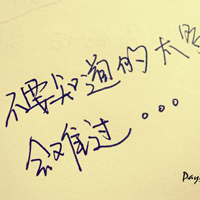 不要知道的太
会难过...
Pay